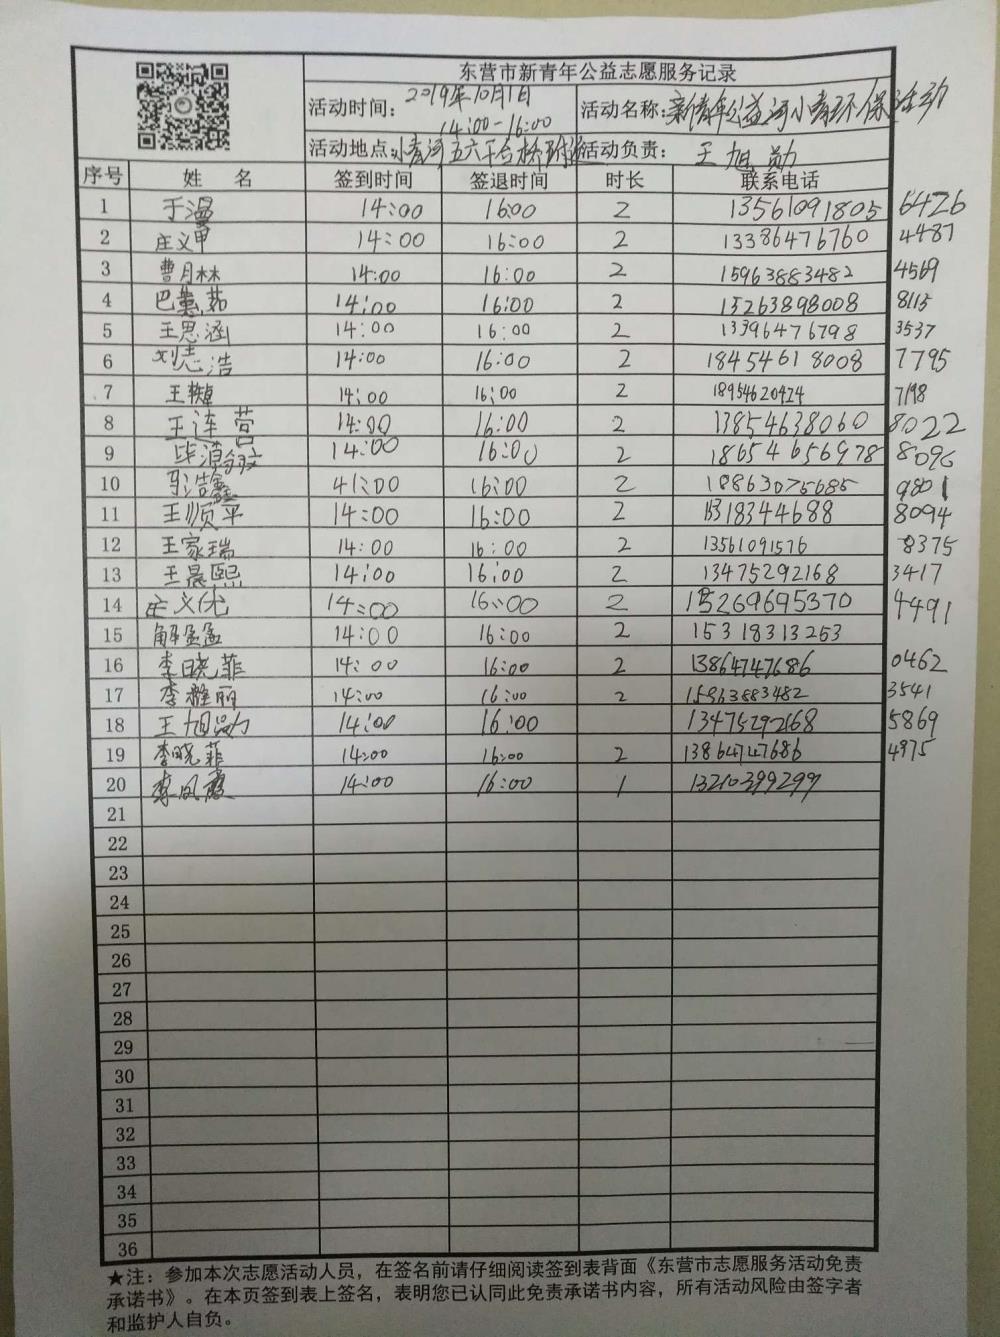 东营市新青年公益志愿服务记录
活动时间：2019年10月1日 14:00-16:00 活动名称：新青年公益河小青环保活动
活动地点：小青河五六干合桥附近 活动负责：王旭勋
序号 姓 名 签到时间 签退时间 时长 联系电话
1 于漫 14:00 16:00 2 13561091805 6426
2 庄义甲 14:00 16:00 2 13386476760 4487
3 曹月林 14:00 16:00 2 15963883482 4569
4 巴 茹 14:00 16:00 2 15263898008 8115
5 王思涵 14:00 16:00 2 13396476798 3537
6 刘志浩 14:00 16:00 2 18454618008 7795
7 王 14:00 16:00 2 18954620424 7198
8 王连营 14:00 16:00 2 13854638060 8022
9 毕 14:00 16:00 2 18654656978 8096
10 马浩鑫 41:00 16:00 2 18863075685 9801
11 王顺平 14:00 16:00 2 8094
12 王家瑞 14:00 16:00 2 13561091576 8375
13 王晨熙 14:00 16:00 2 13475292168 3417
14 庄义优 14:00 16:00 2 15269695370 4491
15 解孟孟 14:00 16:00 2 15318313253
16 李晓菲 14:00 16:00 2 13864747686 0462
17 李雅丽 14:00 16:00 2 15963883482 3541
18 王旭勋 14:00 16:00 13475292168 5869
19 李晓菲 14:00 16:00 2 13864747686 4975
20 李凤霞 14:00 16:00 1 13210399299
21
22
23
24
25
26
27
28
29
30
31
32
33
34
35
36
★注：参加本次志愿活动人员，在签名前请仔细阅读签到表背面《东营市志愿服务活动免责
承诺书》。在本页签到表上签名，表明您已认同此免责承诺书内容，所有活动风险由签字者
和监护人自负。